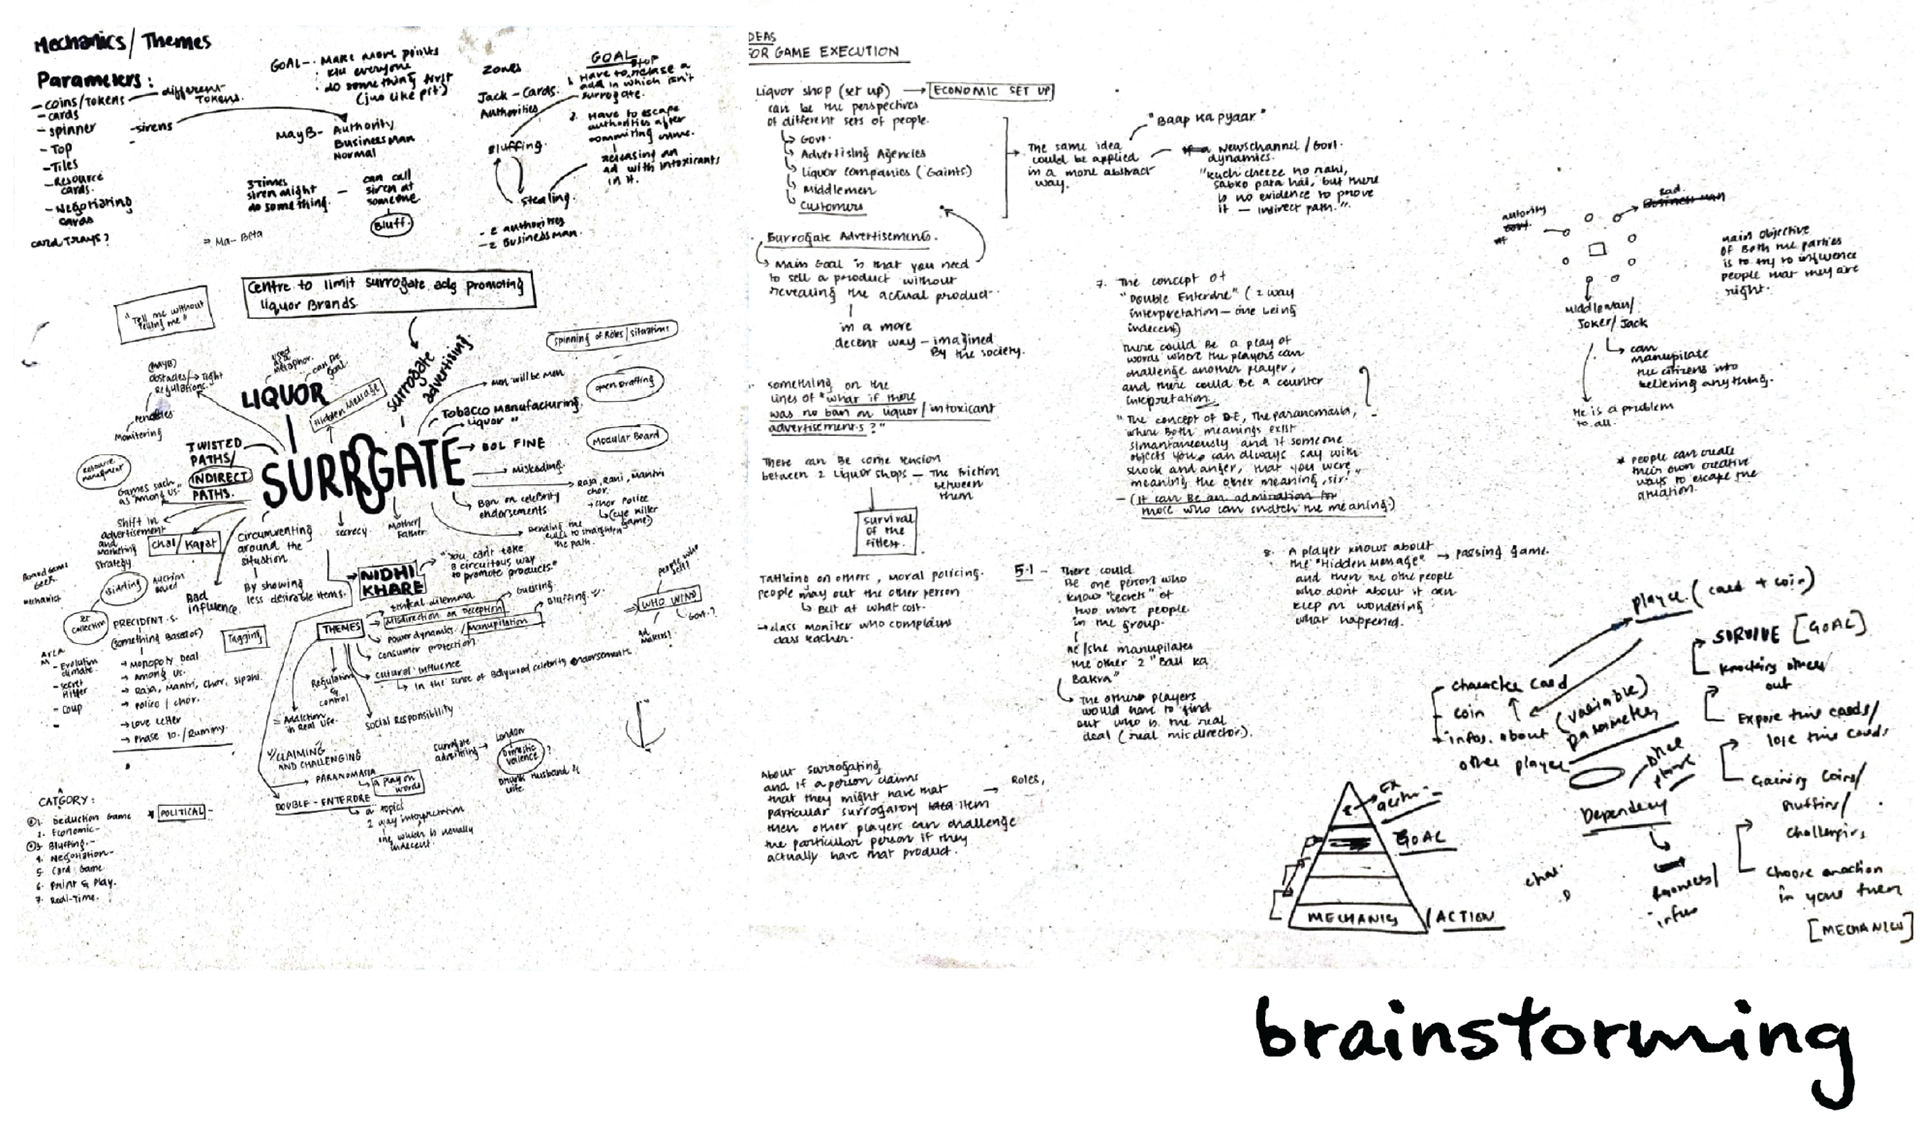 Mechanics/Themes
Parameters:
- coins/Tokens — different Tokens.
- cards
- spinner
- Top
- Tiles
- Resource cards.
- Negotiating cards
card trays?
- sirens
GOAL - . Make more points
: Kill everyone
. do something first
(jus like pit)
MayB - Authority
Businessman
Normal
3 times
siren might
do something.
— can call
siren at
someone.
Bluff.
= Ma-Beta
Zones
Jack-Cards.
Authorities
Bluffing.
stealing.
- 2 authorities
- 2 Businessman.
GOAL
stop
1. Have to release a
add in which isn't
surrogate.
2. Have to escape
authorities after
commiting crime.
releasing an
ad with intoxicants
in it.
Centre to limit surrogate ads promoting
liquor Brands.
"Tell me without
telling me"
(maybe)
obstacles/→ Tight
Regulations.
Penalties
Monitering
used
as a
metaphor.
can be
goal
LIQUOR
Hidden Message
surrogate
advertising.
spinning of Roles/situations
Men will be men
open Drafting
Tobacco Manufacturing.
Liquor "
BOL FINE
Modular Board
SURROGATE
TWISTED
PATHS/
INDIRECT
PATHS.
Resource
managment
Games such
as "Among us."
Misleading
Ban on celebrity
endorsements
Raja, Rani, Mantri
chor.
→ chor Police
(eye killer
game)
Bending the
rules to straighten
the path.
Mother/
Father
secrecy
Circumventing
around the
situation
By showing
less desirable items.
shift in
advertisement
and
Marketing
strategy
Chal/Kapat
Board Game
Geek
mechanics
Bidding
Auction
Based
Set
collection
Bad
influence.
NIDHI
KHARE
"You can't take
a circuitous way
to promote products."
THEMES
Ethical dilemma
Misdirection or Deception
Guessing
Power dynamics/Manupilation
Bluffing
consumer protection
cultural influence
In the sense of Bollywood celebrity endorsements
Regulation
&
control
- Addiction
in Real life.
Social Responsibility
people who
sell?
WHO WINS
Ad
makers?
Govt.?
PRECIDENT.S.
(something Based of)
→ Monopoly Deal
→ Among us.
→ Raja, Mantri, Chor, Sipahi.
→ Police / chor.
→ Love Letter
→ Phase 10./Rummy.
Tagging
- Evolution
climate
- secret
Hitler
- Coup
CLAIMING
AND CHALLENGING
PARANOMASIA
a play on
words
DOUBLE-ENTERDRE
a
topic
2 way interpretation
one which is usually
indecent.
surrogate
advertising
London
Domestic
violence
?
Drunk Husband &
wife
CATGORY:
1. Deduction Game
2. Economic-
3. Bluffing.-
4. Negotiation-
5. Card Game
6. Print & Play.
7. Real-Time.
* POLITICAL -
DEAS
FOR GAME EXECUTION
Liquor shop (set up) → ECONOMIC SET UP
can be the perspectives
of different sets of people.
Govt.
Advertising Agencies
Liquor companies (Gaints)
Middlemen
Customers
The same idea
could be applied
in a more abstract
way.
"Baap Ka pyaar"
a Newschannel/Govt.
dynamics.
"kuch cheeze no rahi,
sabko pata hai, but there
is no evidence to prove
it — indirect path.".
Surrogate Advertisements.
Main Goal is that you need
to sell a product without
revealing the actual product.
in a more
decent way — imagined
By the society.
something on the
lines of "what if there
was no ban on liquor/intoxicant
advertisements?"
There can be some tension
between 2 Liquor shops — the friction
between
them
survival
of the
fittest.
Talking on others, moral policing.
people may out the other person
But at what cost.
→ class moniter who complains
class teacher.
About surrogating,
and if a person claims
that they might have that
particular surrogatory item
then other players can challenge
the particular person if they
actually have that product.
→ Roles,
5.1 - There could
be one person who
know "secrets" of
two more people
in the group.
He/she manupilates
the other 2 "Bali ka
Bakra"
The others players
would have to find
out who is the real
deal (real misdirector).
7. The concept of
"Double Enterdre" (2 way
interpretation — one being
indecent)
There could be a play of
words where the players can
challenge another player,
and there could be a counter
interpretation.
?
"The concept of D.E, The paranomasia,
where both meanings exist
simantaneously and if someone
objects you can always say with
shock and anger, that you were
meaning the other meaning, sir."
- (it can be an admiration for
those who can snatch the meaning.)
8. A player knows about → passing game.
the "Hidden Menage"
and then the othe people
who dont about it can
keep on wondering
what happened.
autority
Govt.
Business man
Middleman/
Joker/Jack
can
manupilate
the citizens into
believing anything.
He is a problem
to all.
Main objective
of Both the parties
is to try to influence
people that they are
right.
* people can create
their own creative
ways to escape the
situation.
player (card + coin)
- character card
- coin
- infos. about
other player
(variable)
parameter
Dependency
SURVIVE [GOAL]
Knocking others
out
Expose their cards/
lose their cards
Gaining coins/
Bluffing/
challenging
choose an action
in your turn
[MECHANICS]
GOAL
MECHANICS / ACTION
brainstorming